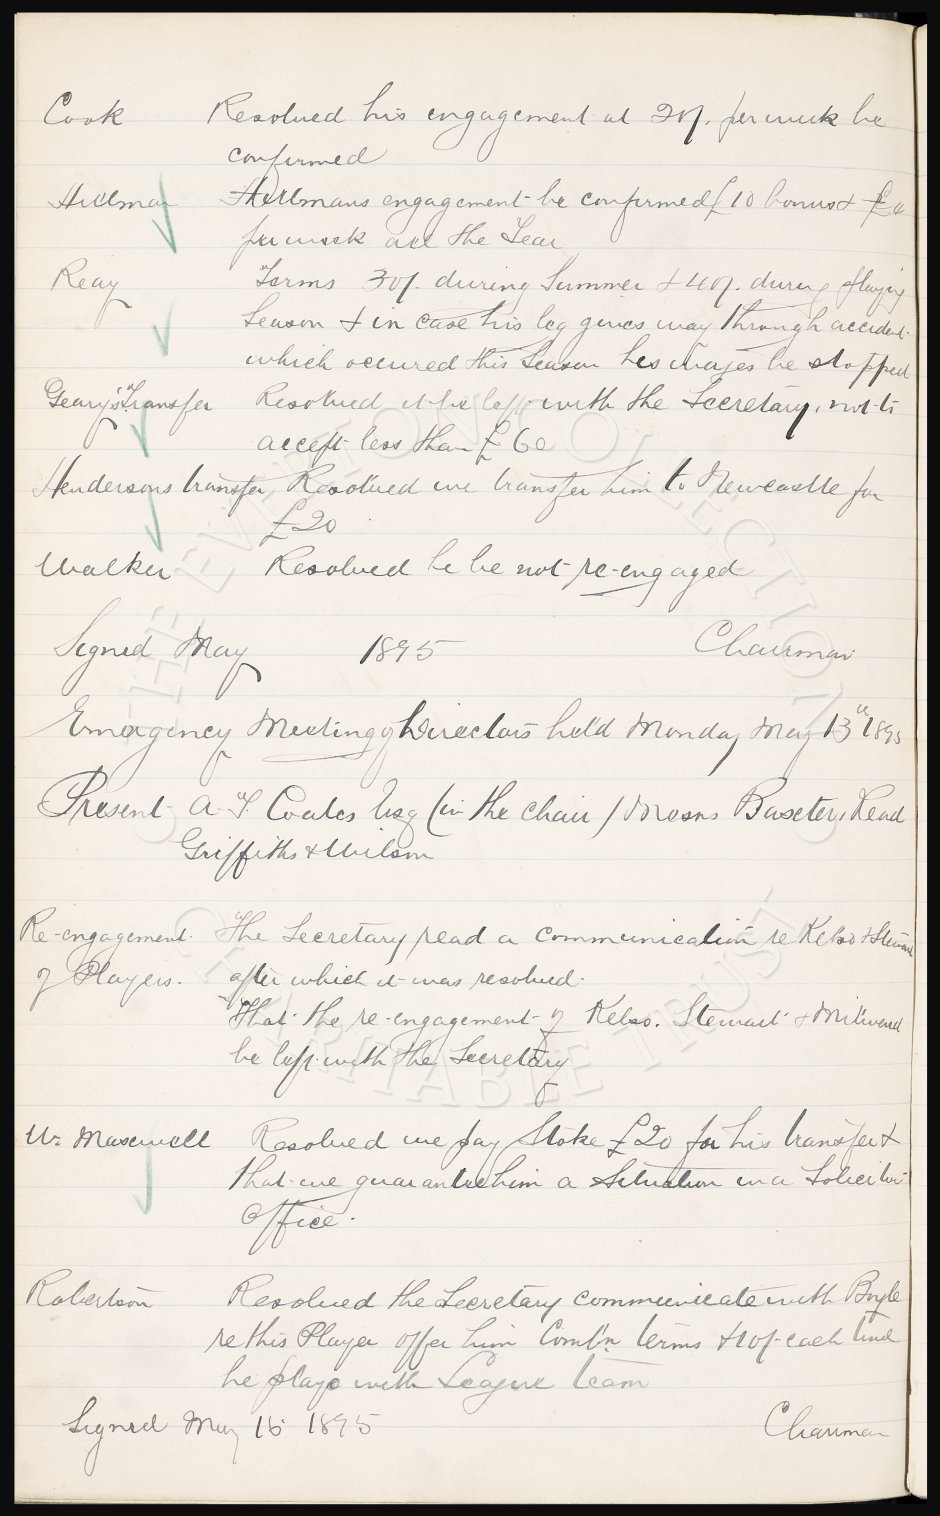 Cook Resolved his engagement at 20/. per week be
confirmed
Hillman Hillmans engagement be confirmed £10 bonus & £4
per week all the Year
Reay Terms 30/. during Summer & 40/. during playing
Season & in case his leg gives way through accident
which occured this Season his wages be stopped
Geary's Transfer Resolved it be left with the Secretary, not to
accept less than £60
Hendersons transfer Resolved we transfer him to Newcastle for
£20
Walker Resolved he be not re-engaged
Signed May 1895 Chairman
Emergency Meeting of Directors held Monday May 13th 1895
Present A. T. Coates Esq (in the chair) Messrs Baxter, Read
Griffiths & Wilson
Re-engagement The Secretary read a communication re Kelso & Stewart
of Players. after which it was resolved.
That the re-engagement of Kelso. Stewart & Milward
be left with the Secretary
W. Maxwell Resolved we pay Stoke £20 for his transfer &
that we guarantee him a Situation in a Solicitors
Office.
Robertson Resolved the Secretary communicate with Boyle
re this Player offer him Comb'n terms & 10/- each time
he plays with League team
Signed May 15 1895 Chairman
THE EVERTON COLLECTION
CHARITABLE TRUST